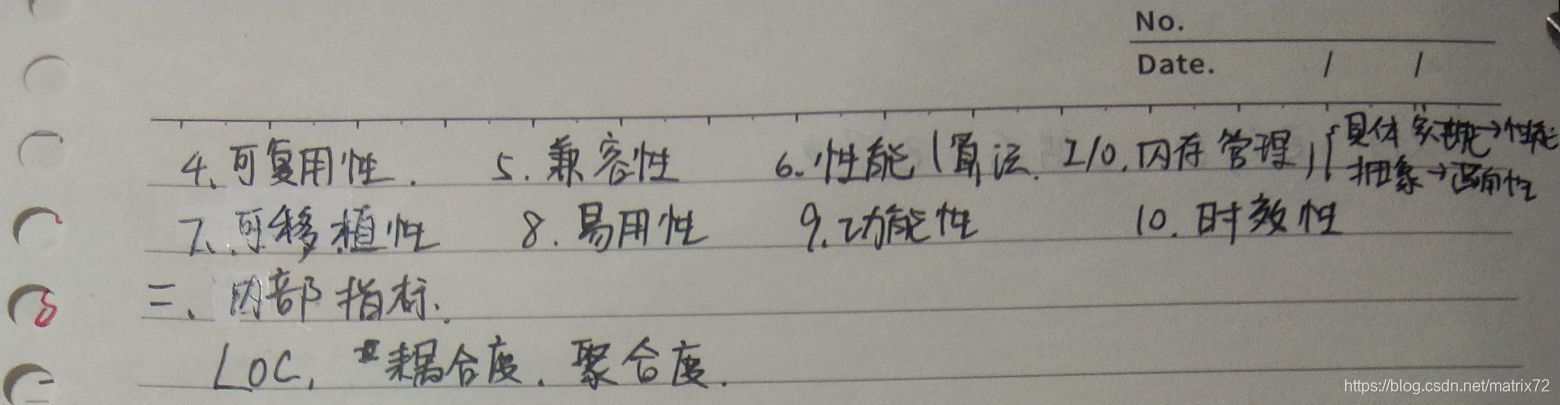 No.
Date. / /
4.可复用性. 5.兼容性 6.性能(算法. I/O.内存管理){具体实现→性能
抽象→适用性
7.可移植性 8.易用性 9.功能性 10.时效性
二、内部指标.
LOC, 耦合度. 聚合度.
https://blog.csdn.net/matrix72